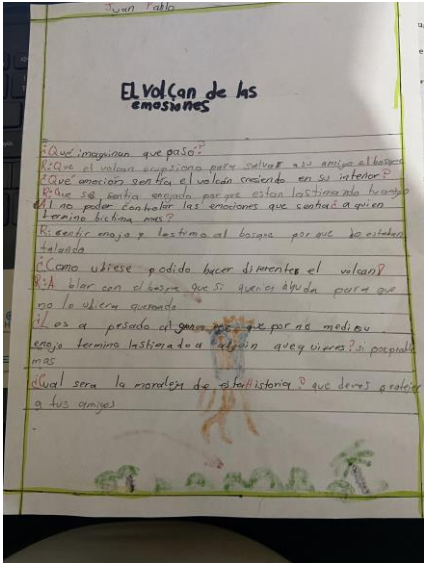 Juan Pablo
El Volcan de las
emosiones
¿Qué imaginan que pasó?
R: Que el volcan erupsiono para salvar a su amigo el bosque
¿Qué emoción sentia el volcán cresiendo en su interior?
R: Que se sentia enojado porque estan lastimando tu amigo
Al no poder controlar las emociones que sentia a quien
termino bictima mas?
R: sentir enojo y lastimo al bosque por que lo estaban
talando
¿Como ubiese podido hacer diferente el volcan?
R: A blar con el bosque que si queria ayuda para que
no lo ubiera quemado
¿Los a pesado que por no medir su
enojo termino lastimado a alguin que quieres? si
mas
¿Cual sera la moraleja de esta Historia? que deves proteier
a tus amigos